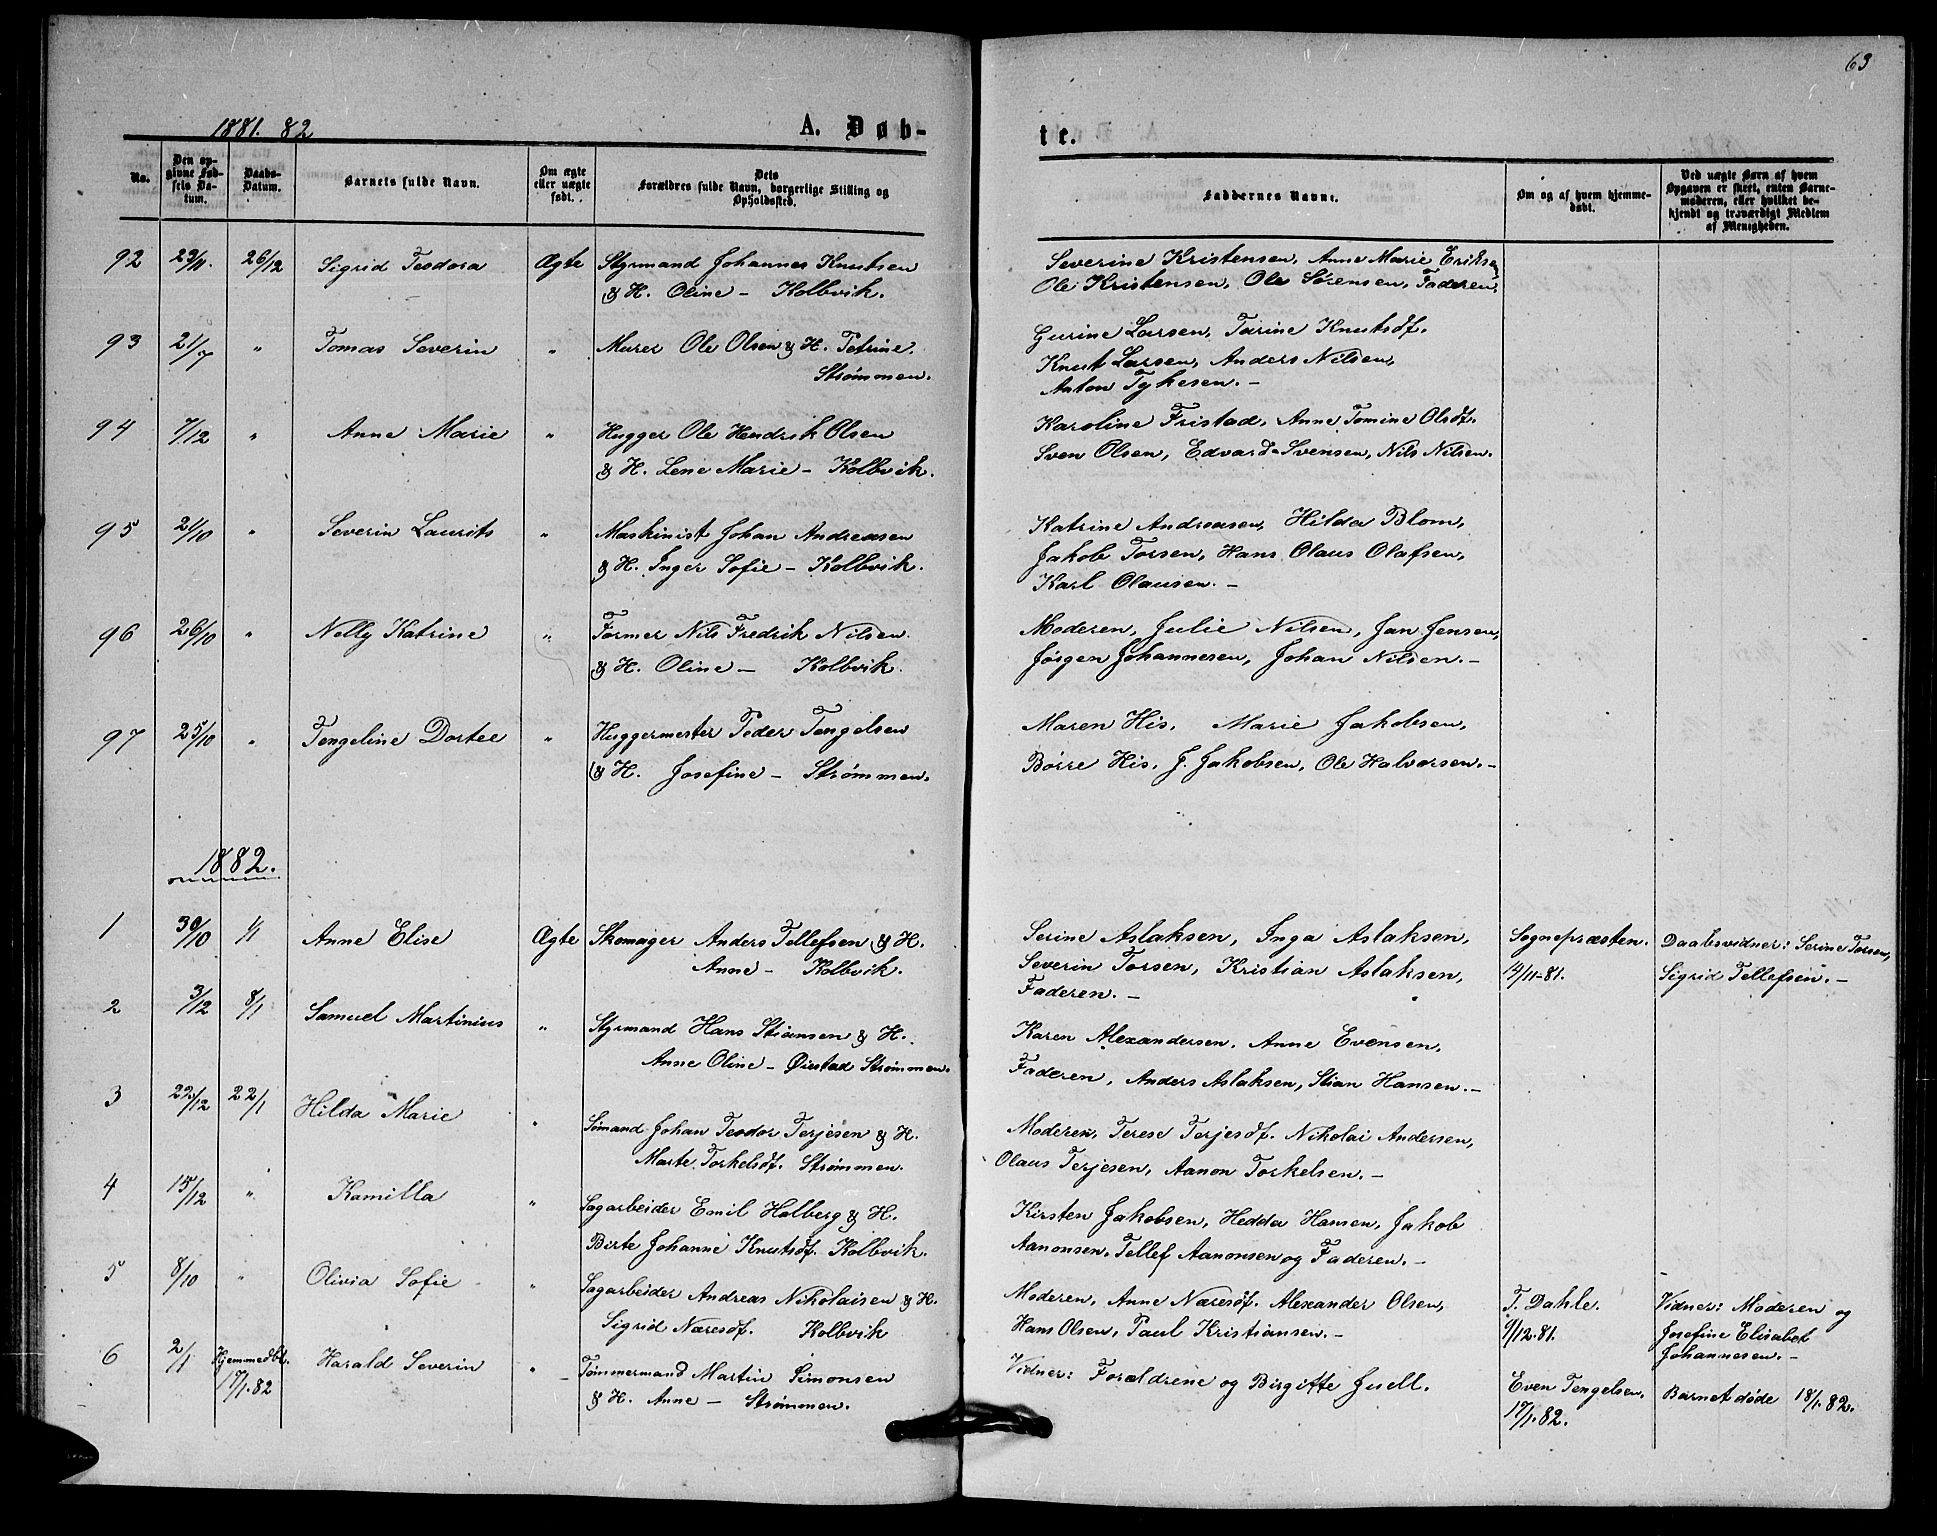 63
1881. 82
A. Døb-
te.
No.
Den op-
givne Fød-
sels Da-
tum.
Daabs-
Datum.
Barnets fulde Navn.
Om ægte
eller uægte
født.
Dets
Forældres fulde Navn, borgerlige Stilling og
Opholdssted.
Faddernes Navne.
Om og af hvem hjemme-
døbt.
Ved uægte Børn af hvem
Opgaven er skeet, enten Barne-
moderen, eller hvilket be-
kjendt og troværdigt Medlem
af Menigheden.
92 23/11. 26/12 Sigrid Teodora Ægte Styrmand Johannes Knutsen
& H. Oline - Kolbvik.
Severine Kristensen, Anne Marie Eriksen
Ole Kristensen, Ole Sørensen, Faderen.
93 21/7 " Tomas Severin " Murer Ole Olsen & H. Petrine.
Strømmen.
Gurine Larsen, Tarine Knutsdf.
Knut Larsen, Anders Nilsen,
Anton Tykesen. -
94 7/12 " Anne Marie " Hugger Ole Hendrik Olsen
& H. Lene Marie - Kolbvik.
Karoline Fristad, Anne Tomine Olsdf.
Sven Olsen, Edvard Svensen, Nils Nilsen.
95 21/10 " Severin Laurits " Maskinist Johan Andreasen
& H. Inger Sofie - Kolbvik.
Katrine Andreasen, Hilda Blom,
Jakob Torsen, Hans Olaus Olafsen,
Karl Olausen. -
96 26/10 " Nelly Katrine " Former Nils Fredrik Nilsen
& H. Oline - Kolbvik.
Moderen, Julie Nilsen, Jan Jensen,
Jørgen Johannesen, Johan Nilsen. -
97 25/10 " Tengeline Dortee " Huggermester Peder Tengelsen
& H. Josefine - Strømmen.
Maren His, Marie Jakobsen,
Børre His, J. Jakobsen, Ole Halvorsen. -
1882.
1 30/10 1/1 Anne Elise Ægte Skomager Anders Tellefsen & H.
Anne - Kolbvik.
Serine Aslaksen, Inga Aslaksen,
Severin Torsen, Kristian Aslaksen,
Faderen. -
Sognepræsten.
14/11-81.
Daabsvidner: Serine Torsen,
Sigrid Tellefsen. -
2 3/12 8/1 Samuel Martinius " Styrmand Hans Stiansen & H.
Anne Oline - Øiestad Strømmen.
Karen Alexandersen, Anne Evensen,
Faderen, Anders Aslaksen, Stian Hansen. -
3 22/12 22/1 Hilda Marie " Sømand Johan Teodor Terjesen & H.
Marte Torkelsdf. Strømmen.
Moderen, Terese Terjesdf. Nikolai Andersen,
Olaus Terjesen, Aanon Torkelsen. -
4 15/12 " Kamilla " Sagarbeider Emil Halberg & H.
Birte Johanne Knutsdf. Kolbvik.
Kirsten Jakobsen, Hedda Hansen, Jakob
Aanonsen, Tellef Aanonsen og Faderen. -
5 8/10 " Olivia Sofie " Sagarbeider Andreas Nikolaisen & H.
Sigrid Næresdf. Kolbvik
Moderen, Anne Næresdf. Alexander Olsen,
Hans Olsen, Paul Kristiansen. -
T. Dahle.
9/12.81.
Vidner: Moderen og
Josefine Elisabet
Johannesen. -
6 2/1 Hjemmedbt.
17/1.82 Harald Severin " Tømmermand Martin Simonsen
& H. Anne - Strømmen.
Vidner: Forældrene og Birgitte Juell.
Even Tengelsen.
17/1.82.
Barnet døde 18/1.82.